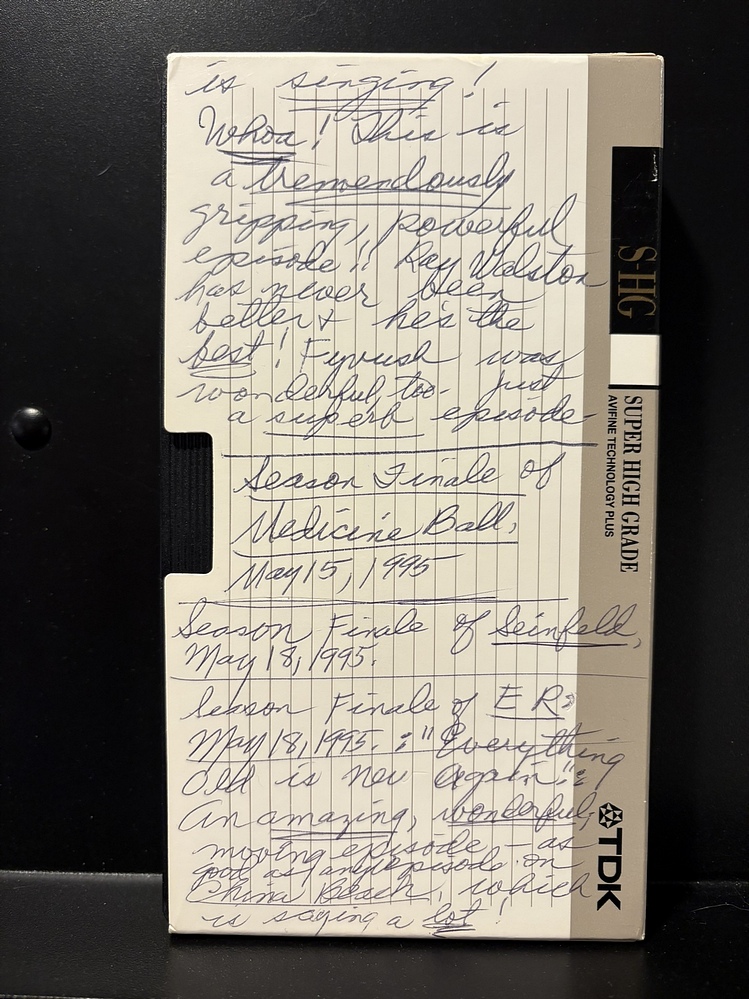 is singing!
Whoa! This is
a tremendously
gripping, powerful
episode!! Ray Walston
has never been
better + he's the
best! Fyvush was
wonderful, too - just
a superb episode -
Season Finale of
Medicine Ball,
May 15, 1995
Season Finale of Seinfeld,
May 18, 1995.
Season Finale of ER:
May 18, 1995. : "Everything
Old is New Again":
An amazing, wonderful,
moving episode - as
good as any episode on
China Beach, which
is saying a lot!
S-HG
SUPER HIGH GRADE
AVIFINE TECHNOLOGY PLUS
TDK